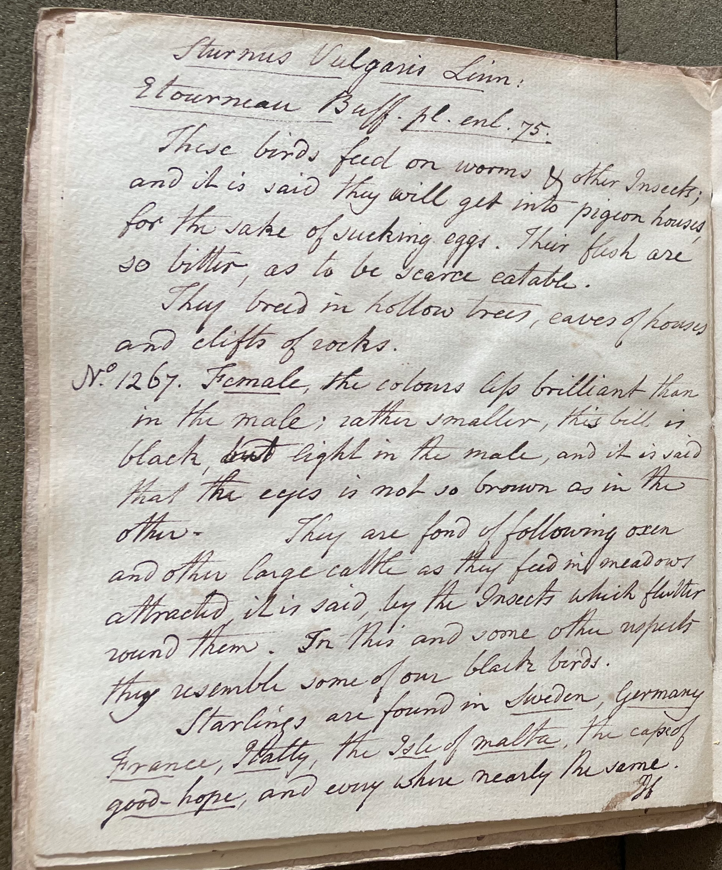 Sturnus Vulgaris Linn:
Etourneau Buff. pl. enl. 75.
These birds feed on worms & other Insects;
and it is said they will get into pigeon houses,
for the sake of sucking eggs. Their flesh are
so bitter, as to be scarce eatable.
They breed in hollow trees, eaves of houses
and clifts of rocks.
No. 1267. Female, the colours less brilliant than
in the male; rather smaller, this bill is
black, but light in the male, and it is said
that the eyes is not so brown as in the
other- They are fond of following oxen
and other large cattle as they feed in meadows
attracted, it is said, by the Insects which flutter
round them. In this and some other respects
they resemble some of our black birds.
Starlings are found in Sweden, Germany
France, Itally, the Isle of malta, the cape of
good-hope, and every where nearly the same.